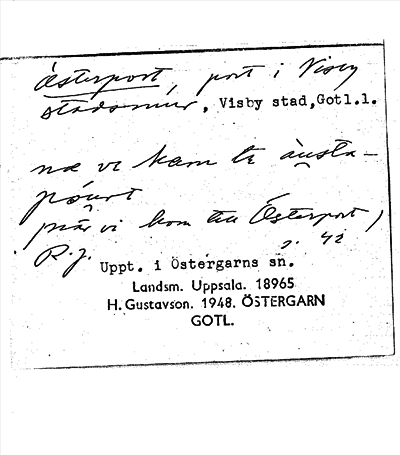 Österport, port i Visby
stadsmur, Visby stad, Gotl.l.
næ vi kam te ànsta-
póurt
när vi kom till Österport)
R.J. s. 42
Uppt. i Östergarns sn.
Landsm. Uppsala. 18965
H. Gustavson. 1948. ÖSTERGARN
GOTL.